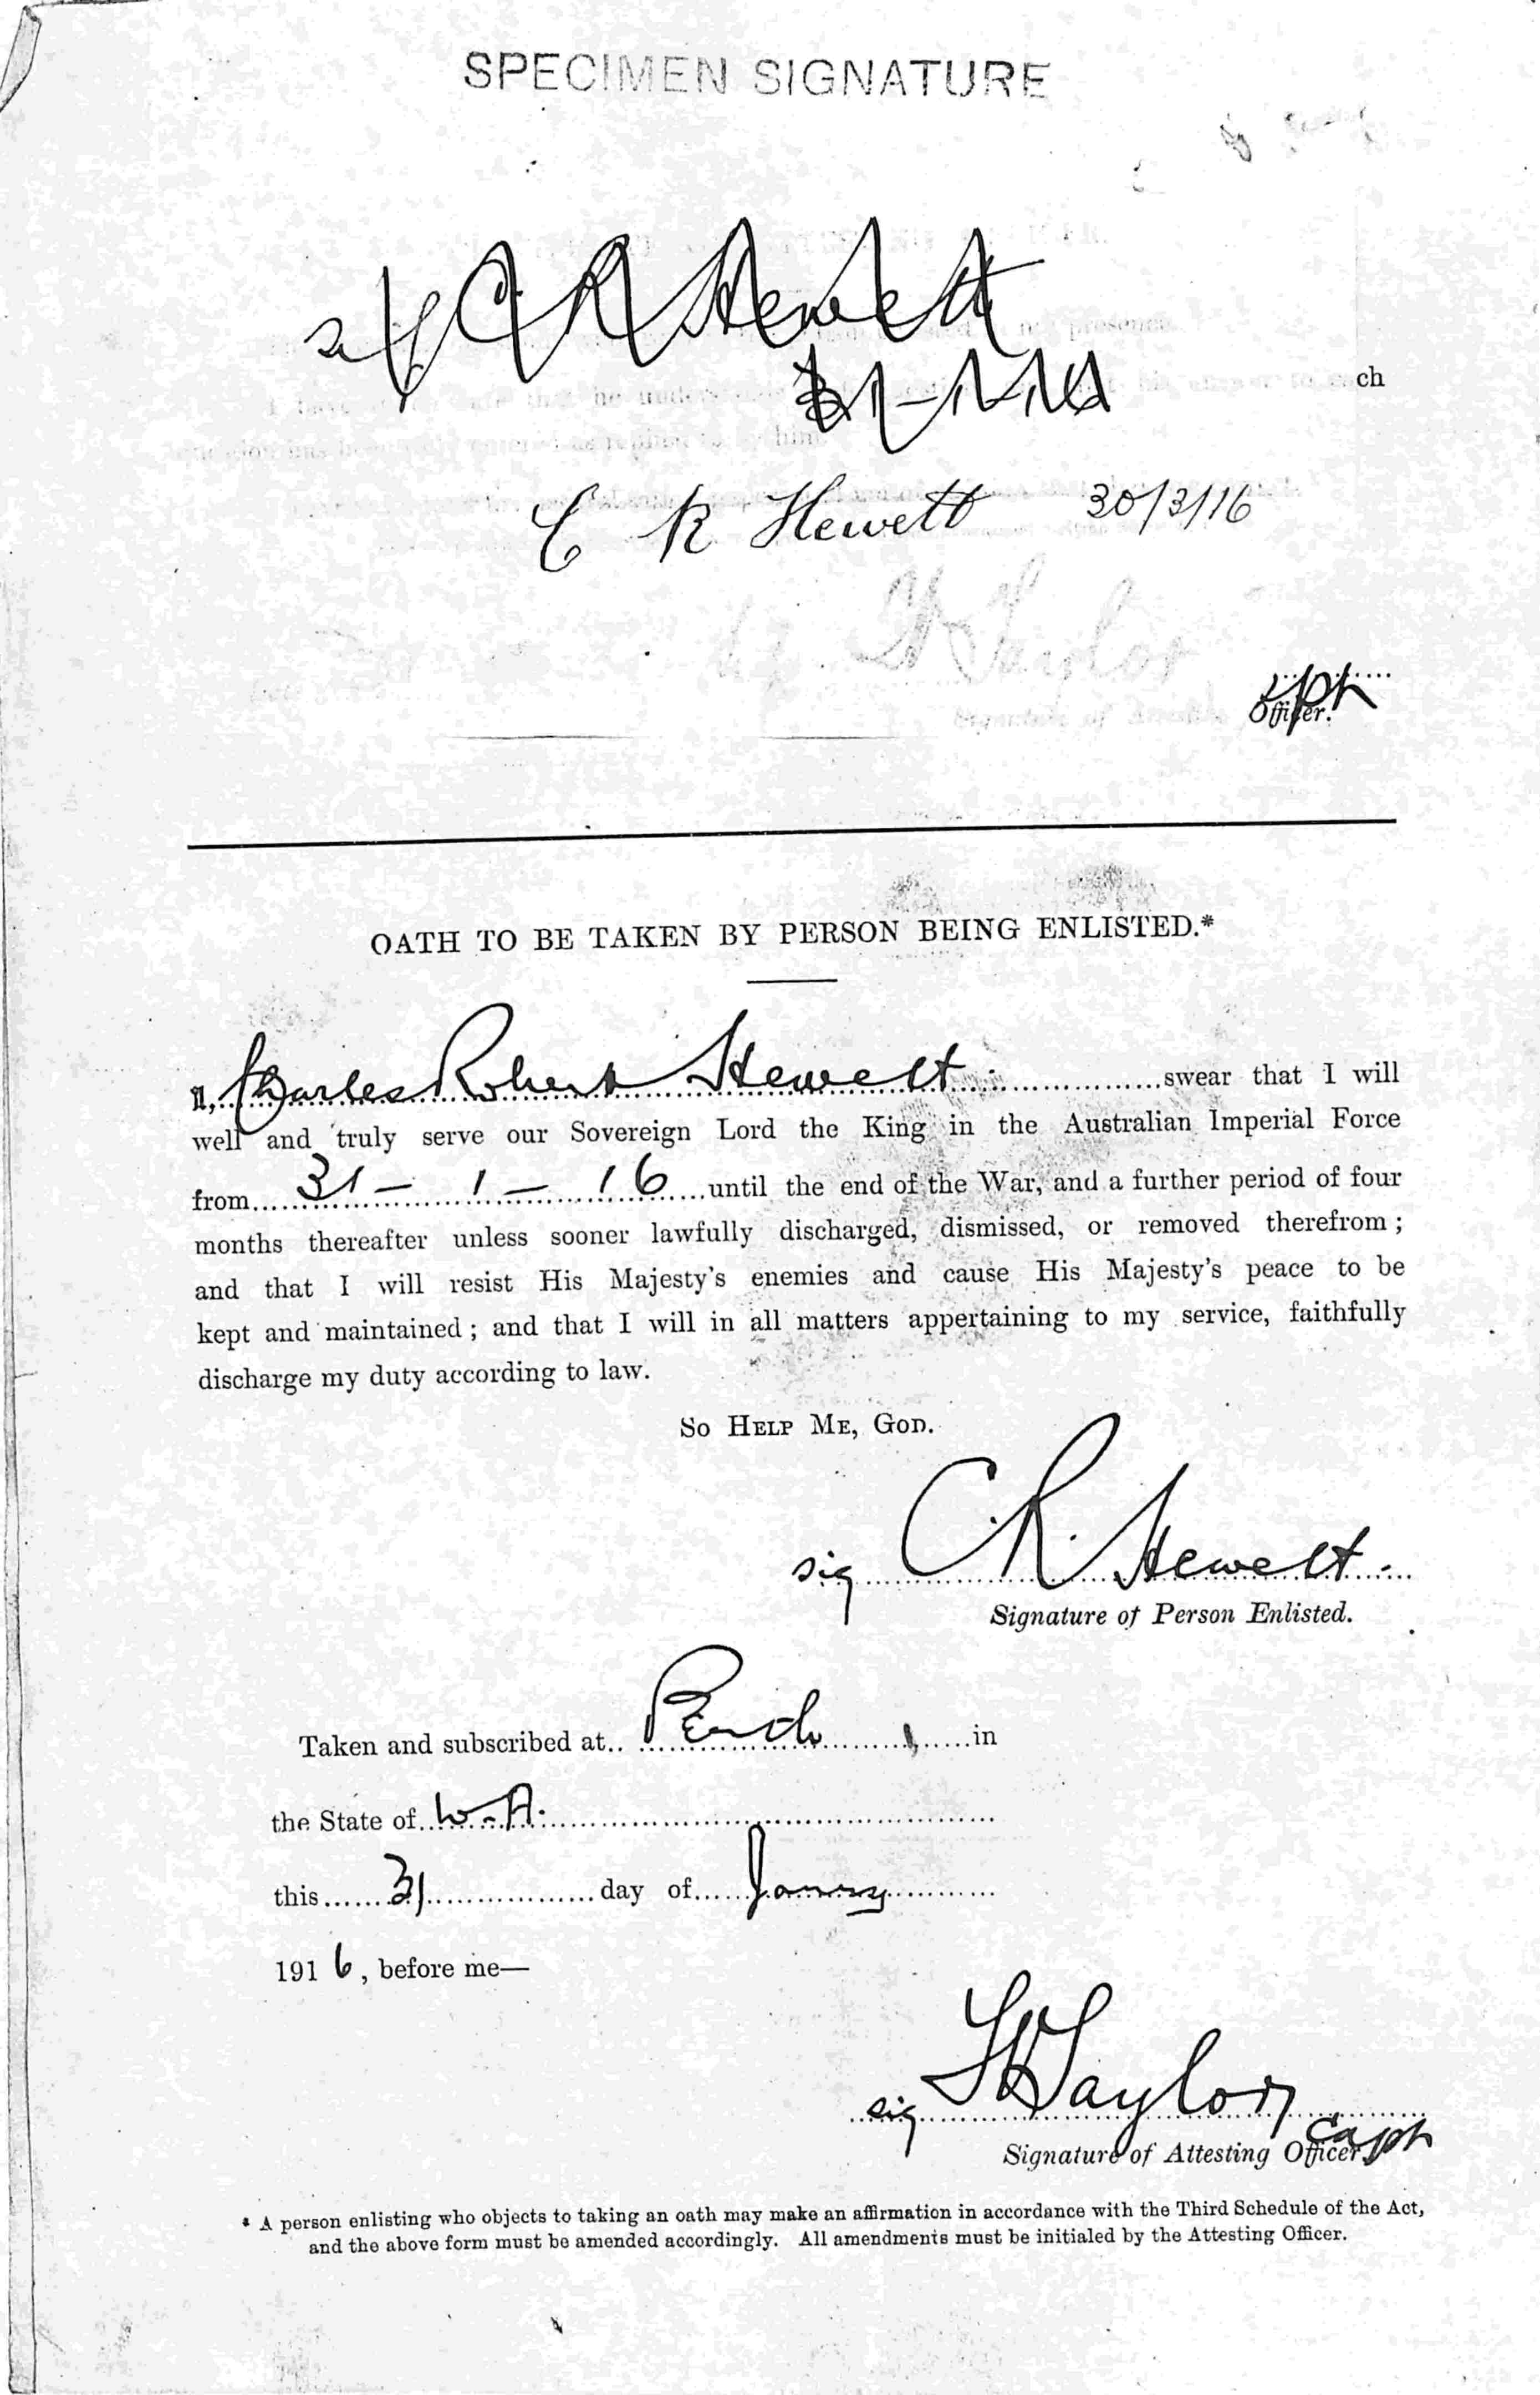 SPECIMEN SIGNATURE
C R Hewett
31-1-16
ch
C R Hewett 30/3/16
Taylor
Officer.
OATH TO BE TAKEN BY PERSON BEING ENLISTED.*
I, Charles Robert Hewett swear that I will
well and truly serve our Sovereign Lord the King in the Australian Imperial Force
from 31 - 1 - 16 until the end of the War, and a further period of four
months thereafter unless sooner lawfully discharged, dismissed, or removed therefrom ;
and that I will resist His Majesty's enemies and cause His Majesty's peace to be
kept and maintained ; and that I will in all matters appertaining to my service, faithfully
discharge my duty according to law.
So Help Me, God.
sig C. R. Hewett
Signature of Person Enlisted.
Taken and subscribed at Perth in
the State of W.A.
this 31 day of Janry
1916, before me—
sig Taylor
Capt
Signature of Attesting Officer
* A person enlisting who objects to taking an oath may make an affirmation in accordance with the Third Schedule of the Act,
and the above form must be amended accordingly. All amendments must be initialed by the Attesting Officer.